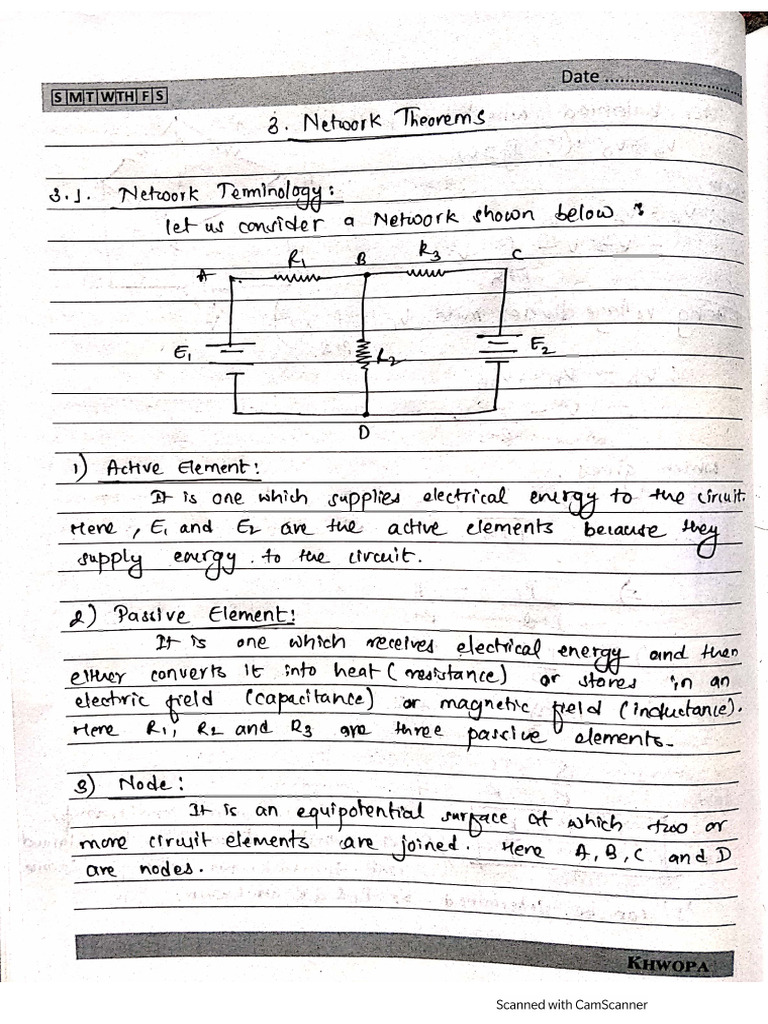 Date ................................
S M T W TH F S
3. Network Theorems
3.1. Network Terminology:
let us consider a Network shown below :
A R1 B R3 C
E1 R2 E2
D
1) Active Element:
It is one which supplies electrical energy to the circuit.
Here, E1 and E2 are the active elements because they
supply energy. to the circuit.
2) Passive Element:
It is one which receives electrical energy and then
either converts it into heat (resistance) or stores in an
electric field (capacitance) or magnetic field (inductance).
Here R1, R2 and R3 are three passive elements.
3) Node:
It is an equipotential surface at which two or
more circuit elements are joined. Here A, B, C and D
are nodes.
KHWOPA
Scanned with CamScanner